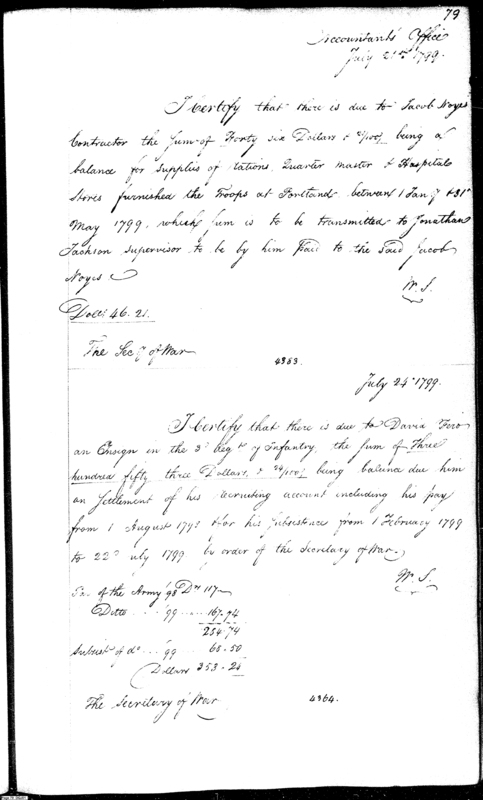 79
Accountants Office
July 21st 1799.
I Certify that there is due to Jacob Noyes
Contractor the Sum of Forty six Dollars & 21/100, being a
balance for supplies of rations, Quarter master & Hospital
Stores furnished the Troops at Portland between 1 Jany & 31st
May 1799, which sum is to be transmitted to Jonathan
Jackson Supervisor to be by him paid to the said Jacob
Noyes
W. S.
Dolls 46. 21.
The Secy of War
4363.
July 24th 1799.
I Certify that there is due to David
an Ensign in the 3d Regt of Infantry, the Sum of Three
hundred fifty three Dollars, & 24/100, being balance due him
on Settlement of his recruiting account including his pay
from 1 August 1798 & for his Subsistence from 1 February 1799
to 22d July 1799 by order of the Secretary of War.
W. S.
of the Army '98 Drs 117
Ditto '99 167. 74
284. 74
Subsist of do '99 68. 50
Dollars 353. 24
The Secretary of War
4364.